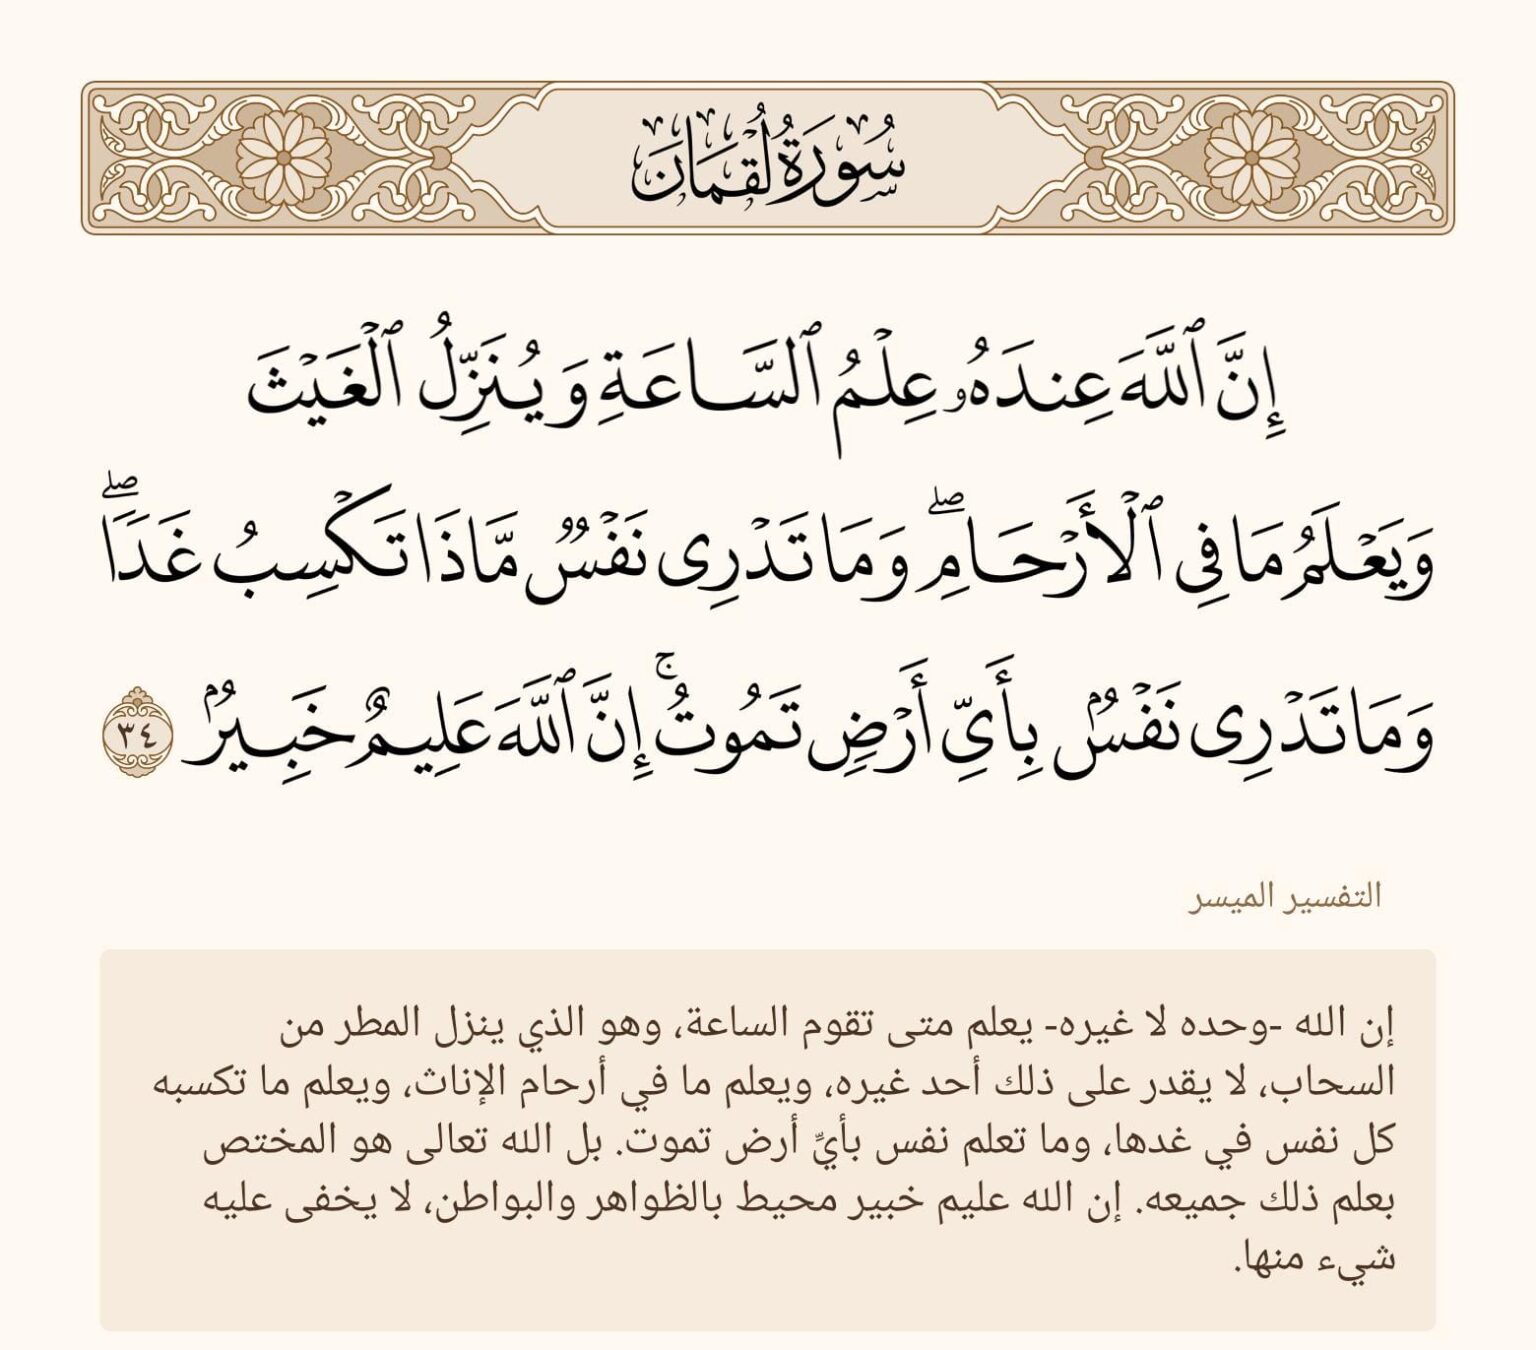 سُورَةُ لُقۡمَانَ
إِنَّ ٱللَّهَ عِندَهُۥ عِلۡمُ ٱلسَّاعَةِ وَيُنَزِّلُ ٱلۡغَيۡثَ
وَيَعۡلَمُ مَا فِي ٱلۡأَرۡحَامِۖ وَمَا تَدۡرِي نَفۡسٞ مَّاذَا تَكۡسِبُ غَدٗاۖ
وَمَا تَدۡرِي نَفۡسُۢ بِأَيِّ أَرۡضٖ تَمُوتُۚ إِنَّ ٱللَّهَ عَلِيمٌ خَبِيرُۢ ٣٤
التفسير الميسر
إن الله -وحده لا غيره- يعلم متى تقوم الساعة، وهو الذي ينزل المطر من
السحاب، لا يقدر على ذلك أحد غيره، ويعلم ما في أرحام الإناث، ويعلم ما تكسبه
كل نفس في غدها، وما تعلم نفس بأيِّ أرض تموت. بل الله تعالى هو المختص
بعلم ذلك جميعه. إن الله عليم خبير محيط بالظواهر والبواطن، لا يخفى عليه
شيء منها.